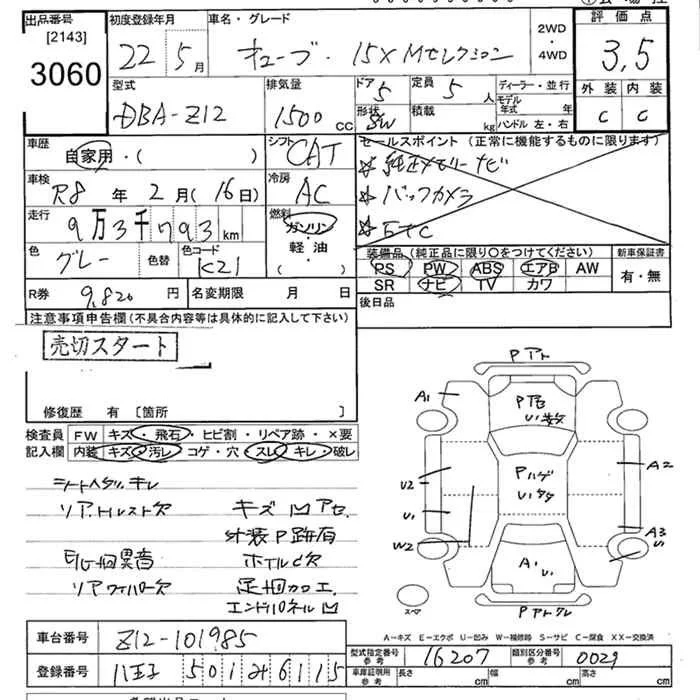 出品番号
[2143]
3060
初度登録年月
22年 5月
車名・グレード
キューブ・ 15X Mセレクション
2WD
・
4WD
評 価 点
3,5
型式
DBA-Z12
排気量
1500 cc
ドア
5
定員
5 人
形状
SW
積載
kg
ディーラー・並 行
モデル年式 年
ハンドル 左・右
外 装 内 装
C C
車歴
自家用・( )
シフト
CAT
セールスポイント(正常に機能するものに限ります)
☆ 純正メモリーナビ
☆ バックカメラ
☆ ETC
車検
R8 年 2 月 ( 16 日)
冷房
AC
走行
9万3千793 km
燃料
ガソリン
軽・油
( ・ )
色
グレー
色替
色コード
K21
装備品(純正品に限り○をつけてください)
PS PW ABS エアB AW
SR ナビ TV カワ
新車保証書
有・無
R券
9,820 円
名変期限 月 日
後日品
注意事項申告欄(不具合内容等は具体的に記入して下さい)
売切スタート
修復歴 有 〔箇所 〕
検査員記入欄
FW キズ・飛石・ヒビ割・リペア跡・×要
内装 キズ・汚レ コゲ・穴 スレ・キレ・破レ
シートヘタリ、キレ
リアトルスト欠 キズ 凹 アセ
外装P跡有
E/G回異音 ホイルC欠
リアワイパー欠 足回カロエ
エンドパネル凹
Pアト
A1
Pアセ
U1数
Pハゲ
U2
U1
W2
A2
A3
U1
A1
U1
Pアトクレ
スペア
A-キズ E-エクボ U-凹み W-補修跡 S-サビ C-腐食 XX-交換済
車台番号
Z12-101985
登録番号
八王子 501 み 6115
型式指定番号
参考
16207
類別区分番号
参考
0029
車庫証明用
参考
長さ cm
幅 cm
高さ cm